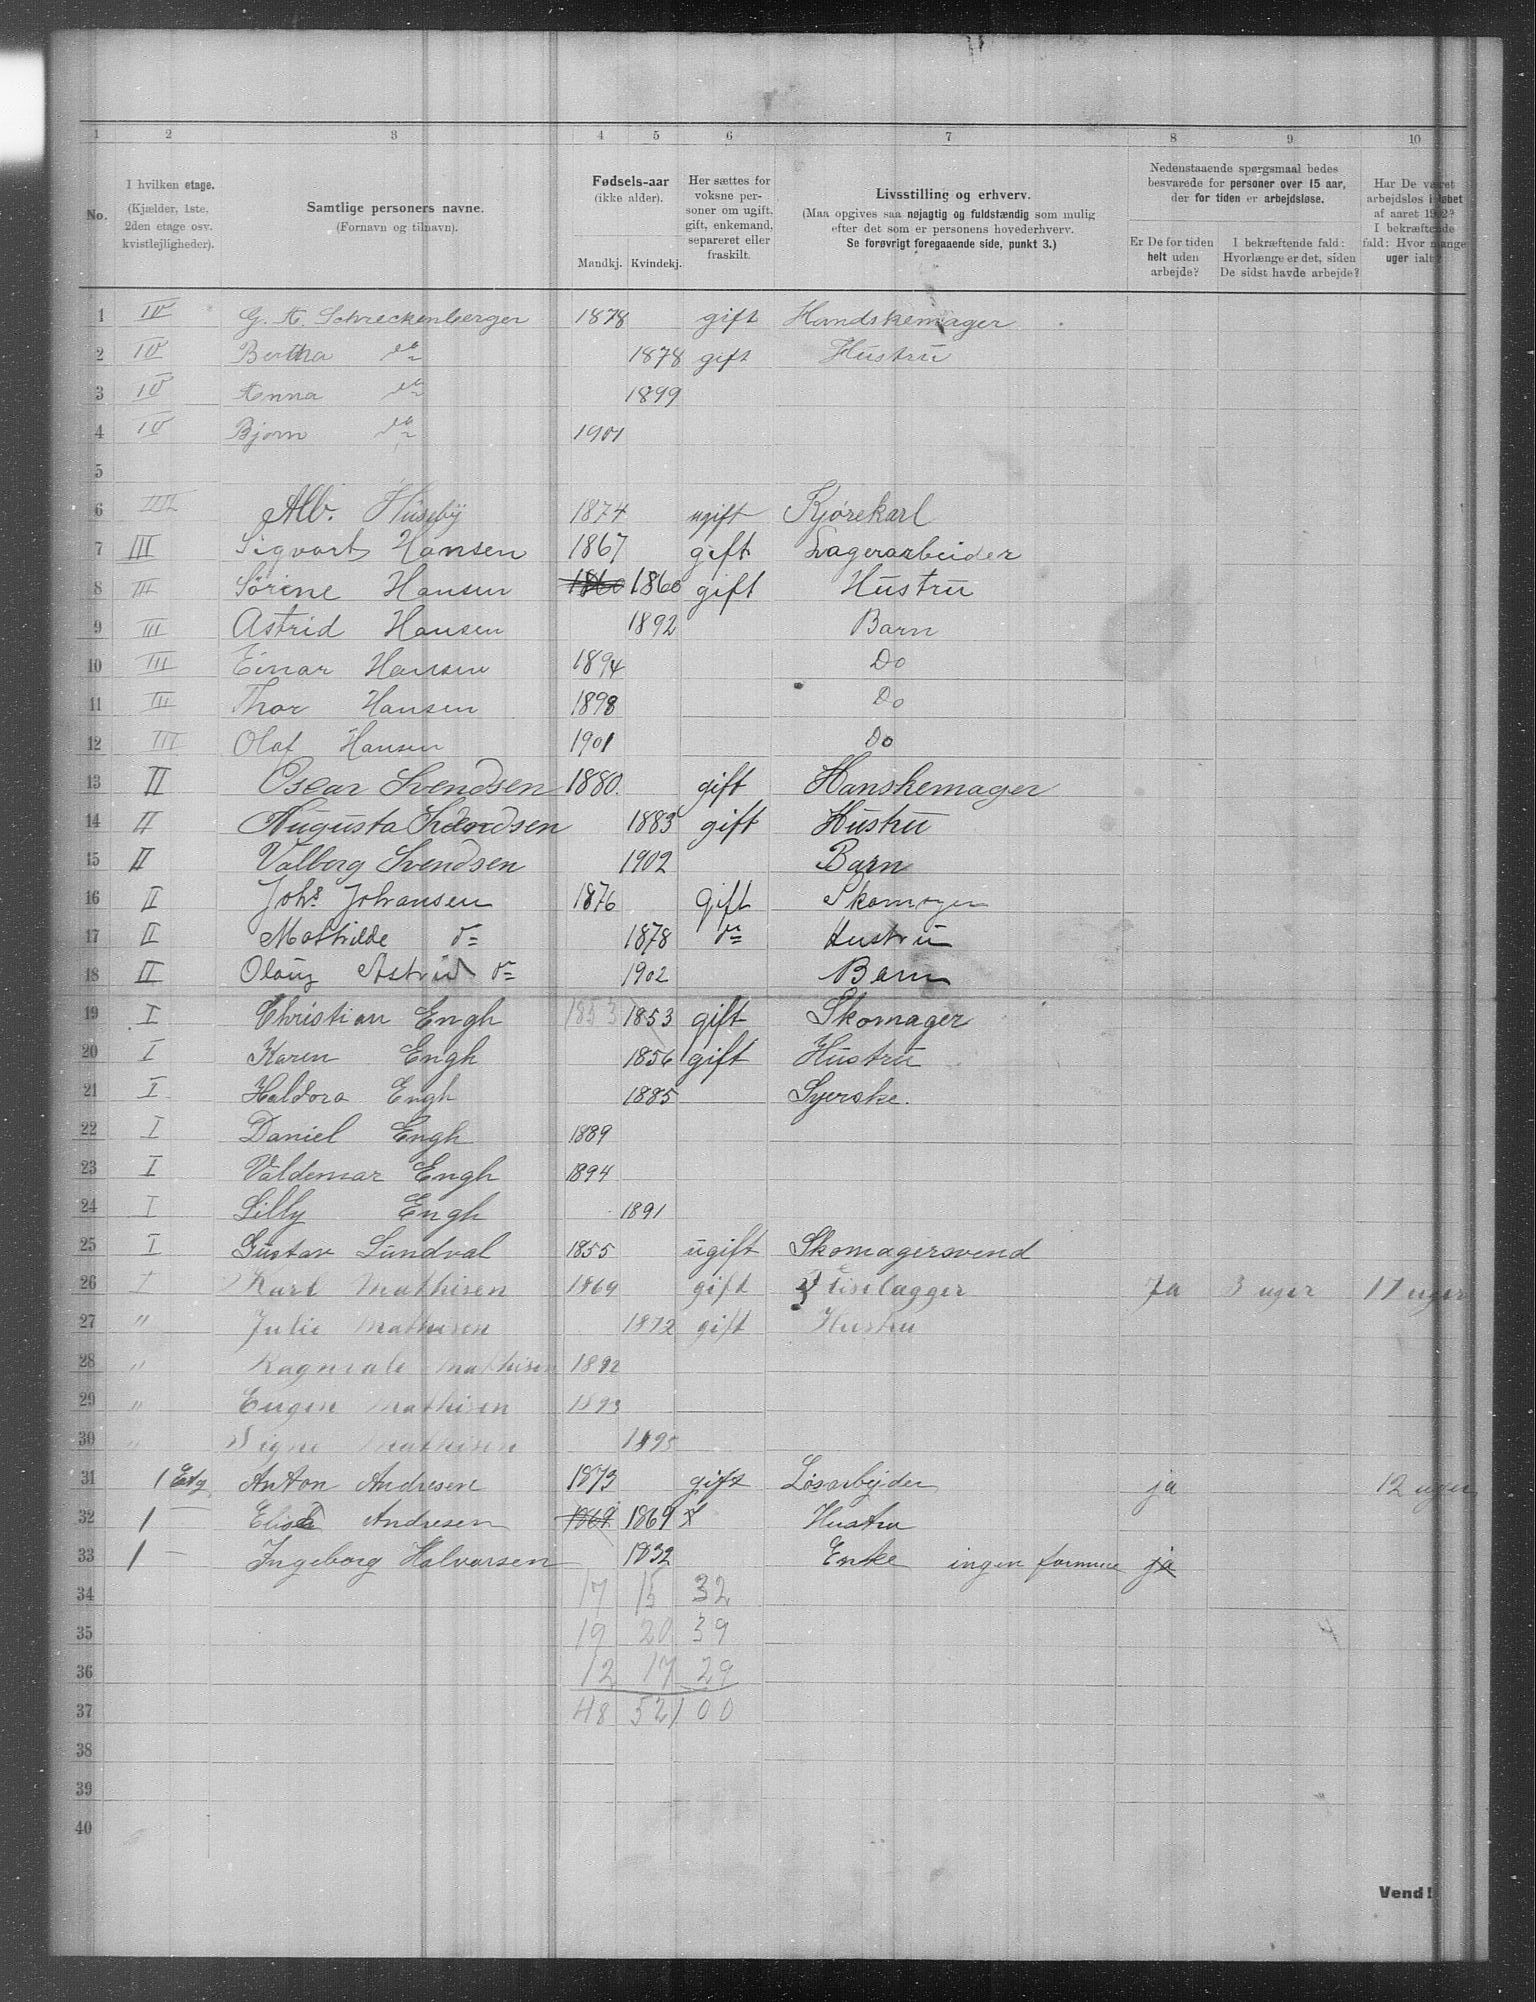 1 2 3 4 5 6 7 8 9 10
No.
I hvilken etage.
(Kjælder, 1ste,
2den etage osv.
kvistlejligheder).
Samtlige personers navne.
(Fornavn og tilnavn).
Fødsels-aar
(ikke alder).
Mandkj. Kvindekj.
Her sættes for
voksne per-
soner om ugift,
gift, enkemand,
separeret eller
fraskilt.
Livsstilling og erhverv.
(Maa opgives saa nøjagtig og fuldstændig som mulig
efter det som er personens hovederhverv.
Se forøvrigt foregaaende side, punkt 3.)
Nedenstaaende spørgsmaal bedes
besvarede for personer over 15 aar,
der for tiden er arbejdsløse.
Er De for tiden
helt uden
arbejde?
I bekræftende fald:
Hvorlænge er det, siden
De sidst havde arbejde?
Har De været
arbejdsløs i løbet
af aaret 1902?
I bekræftende
fald: Hvor mange
uger ialt?
1 IV G. A. Schreckenberger 1878 gift Handskemager
2 IV Bertha do 1878 gift Hustru
3 IV Anna do 1899
4 IV Bjorn do 1901
5
6 III Alb. Huseby 1874 ugift Kjørekarl
7 III Sigvart Hansen 1867 gift Lagerarbeider
8 III Sørine Hansen 1860 1860 gift Hustru
9 III Astrid Hansen 1892 Barn
10 III Einar Hansen 1894 Do
11 III Thor Hansen 1898 Do
12 III Olaf Hansen 1901 Do
13 II Oscar Svendsen 1880. gift Hanskemager
14 II Augusta Svendsen 1883 gift Hustru
15 II Valborg Svendsen 1902 Barn
16 II Johs Johansen 1876 gift Skomager
17 II Mathilde do 1878 do Hustru
18 II Olaug Astrid do 1902 Barn
19 I Christian Engh 1853 1853 gift Skomager
20 I Karen Engh 1856 gift Hustru
21 I Haldora Engh 1885 Syerske.
22 I Daniel Engh 1889
23 I Valdemar Engh 1894
24 I Lilly Engh 1891
25 I Gustav Lundval 1855 ugift Skomagersvend
26 I Karl Mathisen 1869 gift Fliselægger Ja 3 uger 11 uger
27 " Julie Mathisen 1872 gift Hustru
28 " Mathisen 1892
29 " Eugen Mathisen 1893
30 " Signe Mathisen 1895
31 1 Etg Anton Andresen 1873 gift Løsarbejder ja 12 uger
32 1 Elise Andresen 1869 1869 Hustru
33 1 Ingeborg Halvorsen 1832 Enke ingen formue ja
34 17 15 32
35 19 20 39
36 12 17 29
37 48 52 100
38
39
40
Vend!